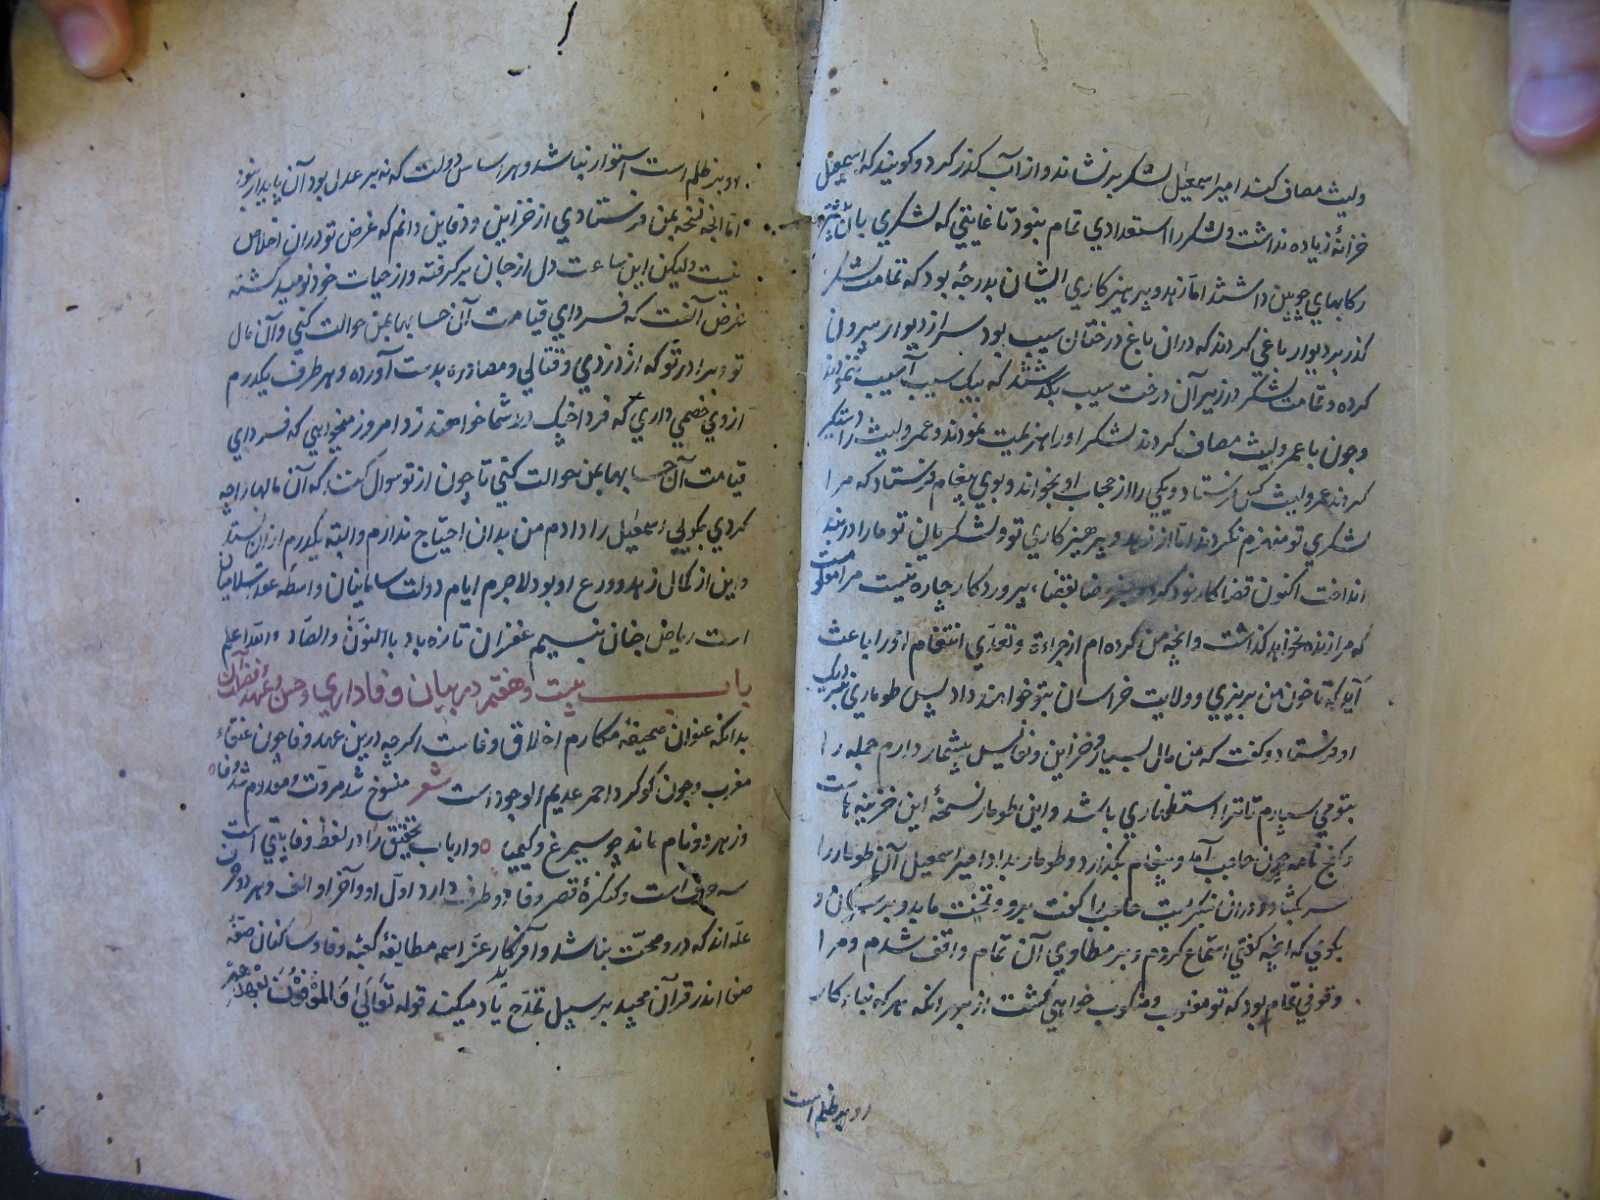 ولیث مصاف کند امیر اسمعیل لشکر برنشاند و از آب گذر کرد و گویند که اسمعیل
خزانۀ زیاده نداشت و لشکر را استعدادی تمام نبود تا غایتی که لشکری بآن
رکابهای چوبین داشتند اما زهد و پرهیزکاری ایشان بدرجۀ بود که تمامت لشکر
گذر بر دیوار باغی کردند که دران باغ درختان سیب بود سر از دیوار بیرون
کرده و تمامت لشکر در زیر آن درخت سیب بگذشتند که بیک سیب آسیب
و چون با عمرو لیث مصاف کردند لشکر او را هزیمت نمودند و عمرو لیث را دستگیر
کردند عمرو لیث کس فرستاد و یکی را از حجاب او بخواند و بوی پیغام فرستاد که مرا
لشکری تو منهزم نکردند اما از زهد و پرهیزکاری تو و لشکریان تو ما را در بند
انداخت اکنون قضا کار خود کرد رضا بقضاء پروردگار چاره نیست مرا معلومست
که مرا زنده نخواهد گذاشت و آنچه من کرده‌ام از جراءة و تعدّی انتقام او را باعث
آید که تا خون من بریزی و ولایت خراسان بتو خواهند داد پس طوماری بنزدیک
او فرستاد و گفت که من مال بسیار و خزاین و نفایس بیشمار دارم جمله را
بتو می سپارم تا ترا استظهاری باشد و این طومار نسخۀ این خزینه هاست
و گنج نامه چون حاجب آمد و پیغام بگذارد و طومار بداد امیر اسمعیل آن طومار را
سر بگشاد و دران نگریست حاجب را گفت برو و تحیت ما بدو برسان و
بگوی که آنچه گفتی استماع کردم و بر مطاوی آن تمام واقف شدم و مرا
وقوفی تمام بود که تو مغلوب و منکوب خواهی گشت از بهر آنکه هر که بناء کار
او بر ظلم است
او بر ظلم است استوار نباشد و هر اساس دولت که نه بر عدل بود آن پایدار نبود
اما آنچه نسخه بمن فرستادی از خزاین و دفاین دانم که غرض تو دران اخلاص
نیست ولیکن این ساعت دل از جان برگرفته و از حیات خود نومید گشته
غرض آنست که فردای قیامت آن حسابها بمن حوالت کنی و آن مال
تو و برادر تو که از دزدی و قتالی و مصادره بدست آورده و هر طرف یکدرم
ازوی خصمی داری که فردا چنگ در شما خواهند زد امروز میخواهی که فردای
قیامت آن حسابها بمن حوالت کنی تا چون از تو سوال کنند که آن مالها را چه
کردی بگویی اسمعیل را دادم من بدان احتیاج ندارم و البته یکدرم ازان نستد
و این از کمال زهد و ورع او بود لاجرم ایام دولت سامانیان واسطۀ عقد سلاطین
است ریاض جنان بنسیم غفران تازه باد باالنون والصاد والله اعلم
باب بیست و هفتم در بیان وفاداری و حسن عهد و فضیلت آن
بدانکه عنوان صحیفۀ مکارم اخلاق وفاست اگرچه درین عهد وفا چون عنقاء
مغرب و چون گوگرد احمر عدیم الوجود است شعر منسوخ شد مروّت و معدوم شد وفا
وز هر دو نام ماند چو سیمرغ و کیمیا و ارباب تحقیق را در لفظ وفا بابتی است
سه حرف است و کنگرۀ قصر وفا دو طرف دارد اول او و آخر او الف و هر دو حرف
علّه اند که درو محبّت نباشد و آفریدگار عزّ اسمه مطایفۀ کعبۀ وفا و ساکنان صفّۀ
صفا اندر قرآن مجید بر سبیل تمدّح یاد میکند قوله تعالی اوالموفون بعهدهم